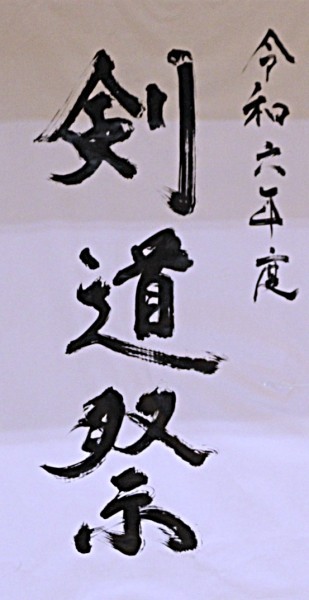 令和六年度
剣道祭